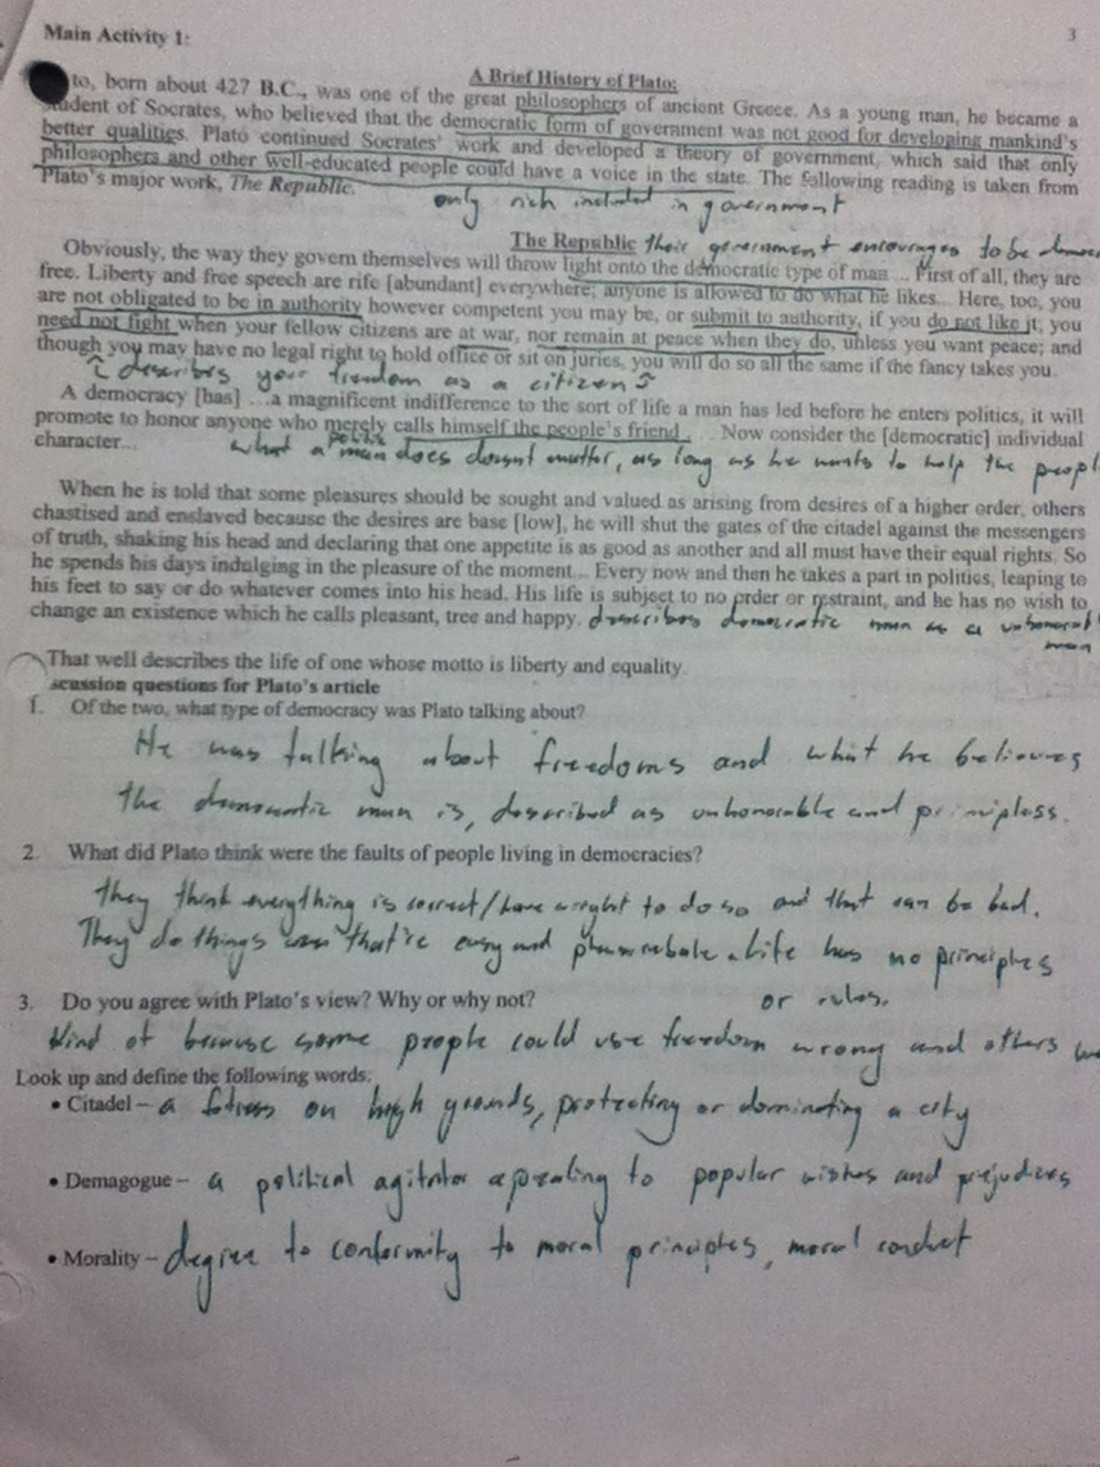 Main Activity 1:
3
A Brief History of Plato:
to, born about 427 B.C., was one of the great philosophers of ancient Greece. As a young man, he became a
student of Socrates, who believed that the democratic form of government was not good for developing mankind's
better qualities. Plato continued Socrates' work and developed a theory of government, which said that only
philosophers and other well-educated people could have a voice in the state. The following reading is taken from
Plato's major work, The Republic.
only rich included in government
The Republic their government encourages to be
Obviously, the way they govern themselves will throw light onto the democratic type of man ... First of all, they are
free. Liberty and free speech are rife [abundant] everywhere; anyone is allowed to do what he likes... Here, too, you
are not obligated to be in authority however competent you may be, or submit to authority, if you do not like it; you
need not fight when your fellow citizens are at war, nor remain at peace when they do, unless you want peace; and
though you may have no legal right to hold office or sit on juries, you will do so all the same if the fancy takes you.
describes your freedom as a citizen
A democracy [has] ...a magnificent indifference to the sort of life a man has led before he enters politics, it will
promote to honor anyone who merely calls himself the people's friend. ... Now consider the [democratic] individual
character...
what a man does doesnt matter, as long as he wants to help the peopl
When he is told that some pleasures should be sought and valued as arising from desires of a higher order, others
chastised and enslaved because the desires are base [low], he will shut the gates of the citadel against the messengers
of truth, shaking his head and declaring that one appetite is as good as another and all must have their equal rights. So
he spends his days indulging in the pleasure of the moment... Every now and then he takes a part in politics, leaping to
his feet to say or do whatever comes into his head. His life is subject to no order or restraint, and he has no wish to
change an existence which he calls pleasant, tree and happy. describes democratic man as a
man
That well describes the life of one whose motto is liberty and equality.
scussion questions for Plato's article
1. Of the two, what type of democracy was Plato talking about?
He was talking about freedoms and what he believes
the democratic man is, described as unhonorable and
2. What did Plato think were the faults of people living in democracies?
They think everything is correct/have a right to do so and that can be bad.
They do things that're easy and Life has no principles
or rules.
3. Do you agree with Plato's view? Why or why not?
Kind of because some people could use freedom wrong and others
Look up and define the following words:
• Citadel - a fotress on high grounds, protecting or dominating a city
• Demagogue - a political agitator appealing to popular wishes and prejudices
• Morality - degree to conformity to moral principles, moral conduct